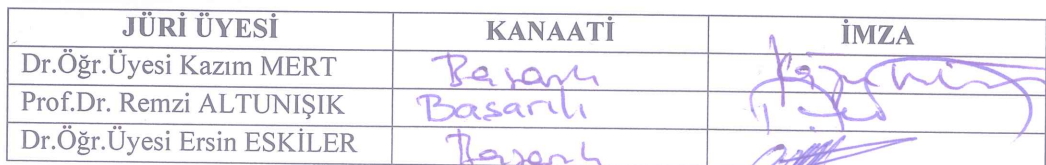 JÜRİ ÜYESİ KANAATİ İMZA
Dr.Öğr.Üyesi Kazım MERT Başarılı
Prof.Dr. Remzi ALTUNIŞIK Başarılı
Dr.Öğr.Üyesi Ersin ESKİLER Başarılı